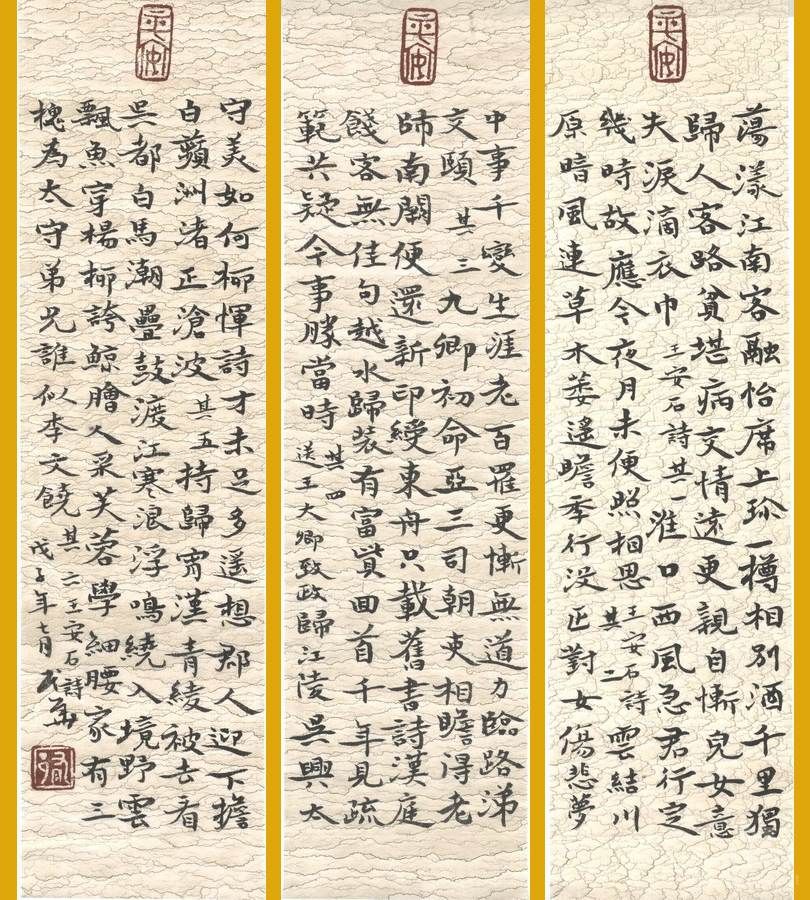 平安
蕩漾江南客融怡席上珎一樽相別酒千里獨
歸人客路貧堪病交情遠更親自慚兒女意
失淚滴衣巾 王安石詩其一 淮口西風急君行定
幾時故應今夜月未便照相思 王安石詩其二 雲結川
原暗風連草木萎遙瞻季行沒正對女傷悲夢
平安
中事千變生涯老百罹更慚無道力臨路涕
交頤 其三 九卿初命亞三司朝吏相瞻得老
師南闕便還新印綬東舟只載舊書詩漢庭
餞客無佳句越水歸裝有富貲回首千年見疏
範共疑今事勝當時 其四 送王大卿致政歸江陵 吳興太
平安
守美如何柳惲詩才未足多遙想郡人迎下擔
白蘋洲渚正滄波 其五 持歸霄漢青綾被去看
吳都白馬潮疊鼓渡江寒浪浮鳴繞入境野雲
飄魚穿楊柳誇鯨膾人采芙蓉學細腰家有三
槐為太守弟兄誰似李文饒 其六王安石詩
戊子年七月